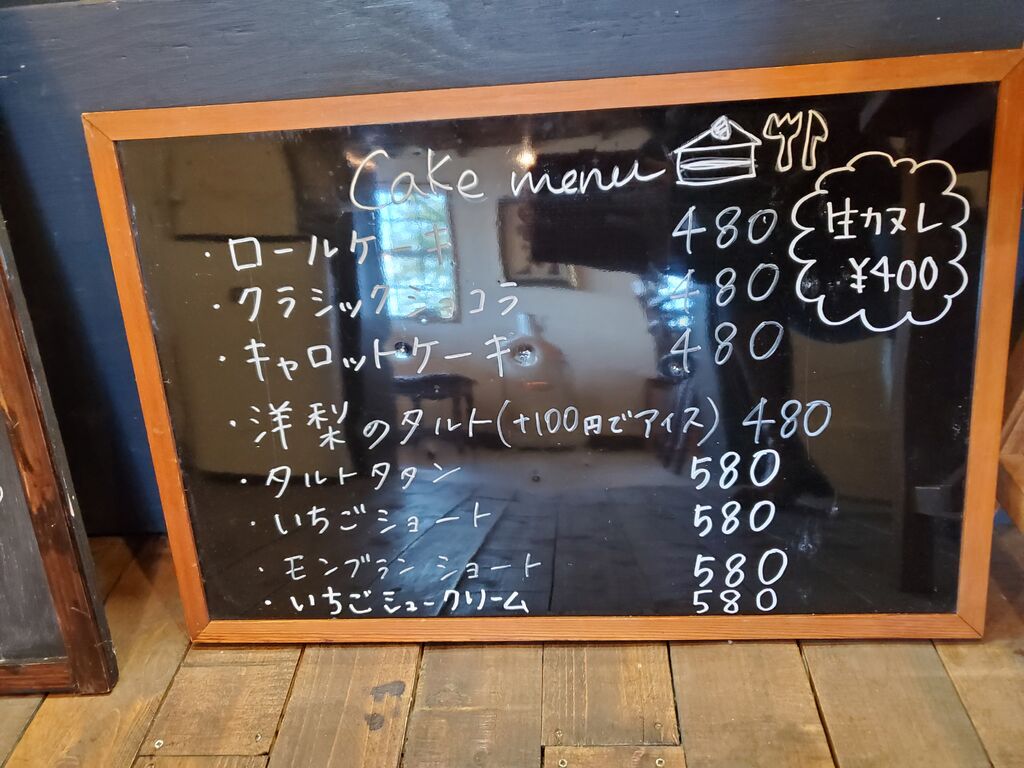 Cake menu
・ロールケーキ 480
・クラシックショコラ 480
・キャロットケーキ 480
・洋梨のタルト(+100円でアイス) 480
・タルトタタン 580
・いちごショート 580
・モンブランショート 580
・いちごシュークリーム 580
生カヌレ
¥400